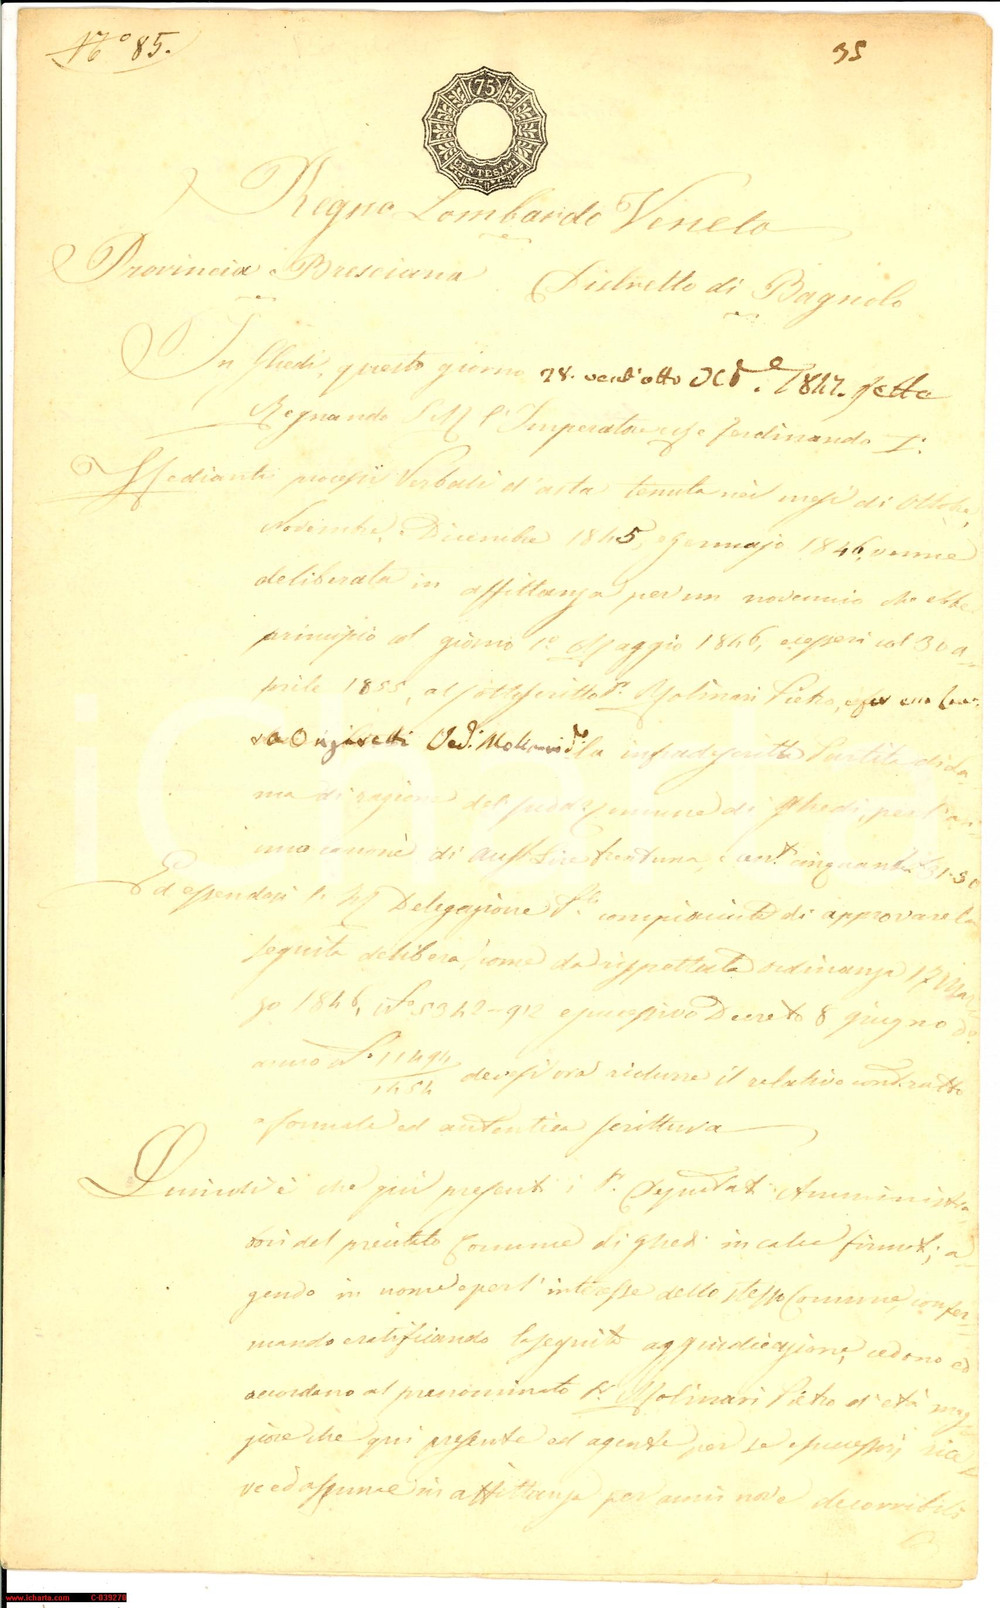 N.° 85.
35
75
CENTESIMI
Regno Lombardo Veneto
Provincia Bresciana Distretto di Bagnolo
In Ghedi, questo giorno 28. vent'otto 1847. sette
Regnando S. M. l'Imperatore e Re Ferdinando I.°
Mediante processi Verbali d'asta tenuta nei mesi di Ottobre,
Novembre, Dicembre 1845, e Gennajo 1846, venne
deliberata in affittanza per un novennio che ebbe
principio col giorno 1.° Maggio 1846, e cesserà col 30 a-
prile 1855, al sottoscritto S.r Molinari Pietro,
la infradescritta Partita di da-
ma di ragione del Comune di Ghedi, per l'an-
nuo canone di Aust. Lire trentuna, e cent. cinquanta 31.50
Ed essendosi la R. Delegazione P.le compiaciuta di approvare la
seguita delibera, come da rispettata ordinanza 17 Mar-
zo 1846, N.° 5342-912 e successivo Decreto 8 giugno d.°
anno N.° 11494/1454 devesi ora ridurre il relativo contratto
a formale ed autentica scrittura
Quindi è che quì presenti i S.ri Deputati Amministra-
tori del preddetto Comune di Ghedi in calce firmati, a-
gendo in nome e per l'interesse dello stesso Comune, confer-
mando e ratificando la seguita aggiudicazione, cedono ed
accordano al prenominato S.r Molinari Pietro d'età mag-
giore che quì presente ed agente per se e successori rice-
ve ed assume in affittanza per anni nove decorribili
www.icharta.com C-039278
iCharta